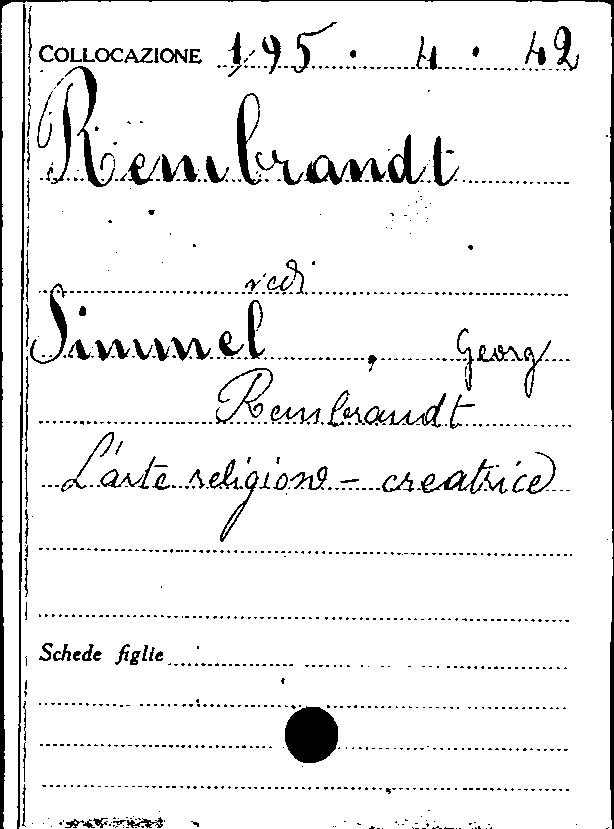 COLLOCAZIONE 195 . 4 . 42
Rembrandt
vedi
Simmel , Georg
Rembrandt
L'arte religioso - creatrice
Schede figlie